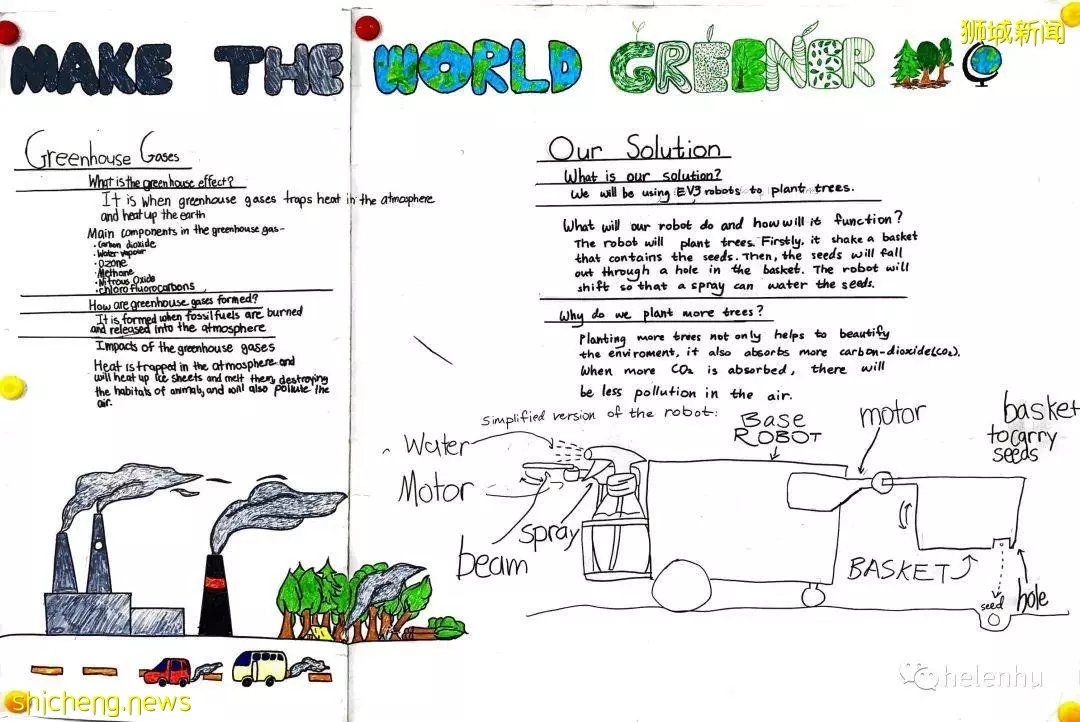 MAKE THE WORLD GREENER
狮城新闻
Greenhouse Gases
What is the greenhouse effect?
It is when greenhouse gases traps heat in the atmosphere
and heat up the earth
Main components in the greenhouse gas-
• Carbon dioxide
• Water vapour
• Ozone
• Methane
• Nitrous Oxide
• Chlorofluorocarbons
How are greenhouse gases formed?
It is formed when fossil fuels are burned
and released into the atmosphere
Impacts of the greenhouse gases
Heat is trapped in the atmosphere and
will heat up ice sheets and melt them, destroying
the habitats of animals, and will also pollute the
air.
Our Solution
What is our solution?
We will be using EV3 robots to plant trees.
What will our robot do and how will it function?
The robot will plant trees. Firstly, it shake a basket
that contains the seeds. Then, the seeds will fall
out through a hole in the basket. The robot will
shift so that a spray can water the seeds.
Why do we plant more trees?
Planting more trees not only helps to beautify
the enviroment, it also absorbs more carbon-dioxide(CO2).
When more CO2 is absorbed, there will
be less pollution in the air.
Simplified version of the robot:
Water
Motor
beam
spray
BASE
ROBOT
motor
basket
to carry
seeds
BASKET
seed
hole
helenhu
shicheng.news